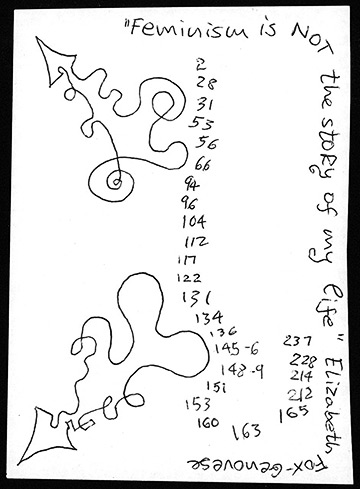 "Feminism is NOT the stoRy of my life" Elizabeth Fox-Genovese
2
28
31
53
56
66
94
96
104
112
117
122
131
134
136
145-6
148-9
151
153
160
163
165
212
214
228
237